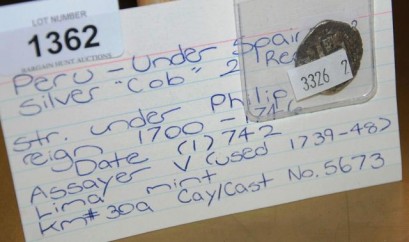 LOT NUMBER
1362
BARGAIN HUNT AUCTIONS
Peru - Under Spain
Silver "Cob" 2 Re
3326 2
Str. under Philip
reign 1700 - 
Date (1)742
Assayer V (used 1739-48)
Lima mint
Km# 30a Cay/Cast No. 5673